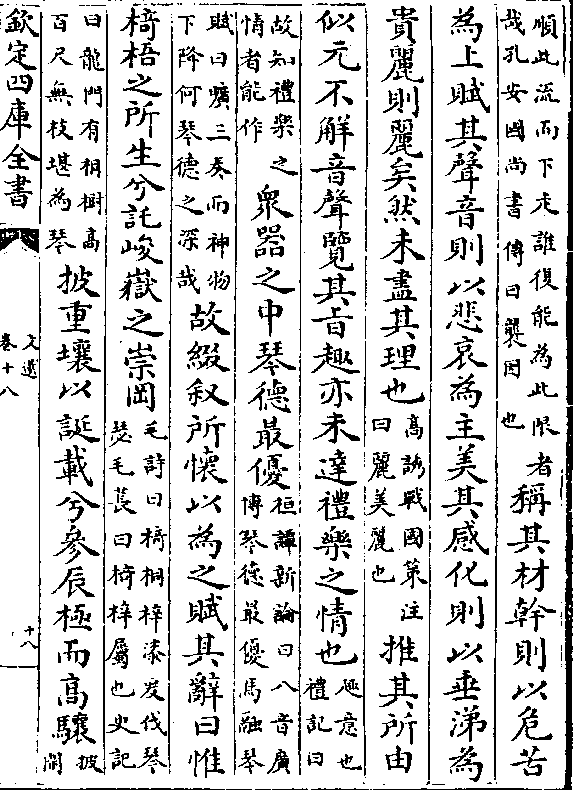 順此流而下走誰復能為此限者
哉孔安國尚書傳曰襲因也
稱其材幹則以危苦
為上賦其聲音則以悲哀為主美其感化則以垂涕為
貴麗則麗矣然未盡其理也
髙誘戰國策注
曰麗美麗也
推其所由
似元不解音聲覽其旨趣亦未達禮樂之情也
趣意也
禮記曰
故知禮樂之
情者能作
衆器之中琴德最優
桓譚新論曰八音廣
博琴德最優馬融琴
賦曰曠三奏而神物
下降何琴德之深哉
故綴叙所懷以為之賦其辭曰惟
椅梧之所生兮託峻嶽之崇岡
毛詩曰椅桐梓漆爰伐琴
瑟毛萇曰椅梓屬也史記
曰龍門有桐樹髙
百尺無枝堪為琴
披重壤以誕載兮參辰極而髙驤
披
開
欽定四庫全書
文選
卷十八
十八